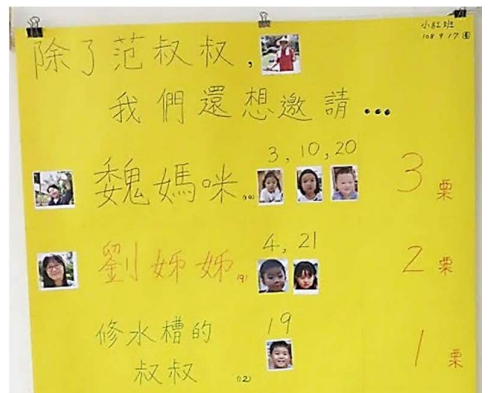 小紅班
108 9 17
除了范叔叔,
我們還想邀請...
3, 10, 20
魏媽咪 3栗
4, 21
劉姊姊 2栗
19
修水槽的
叔叔 (12) 1栗